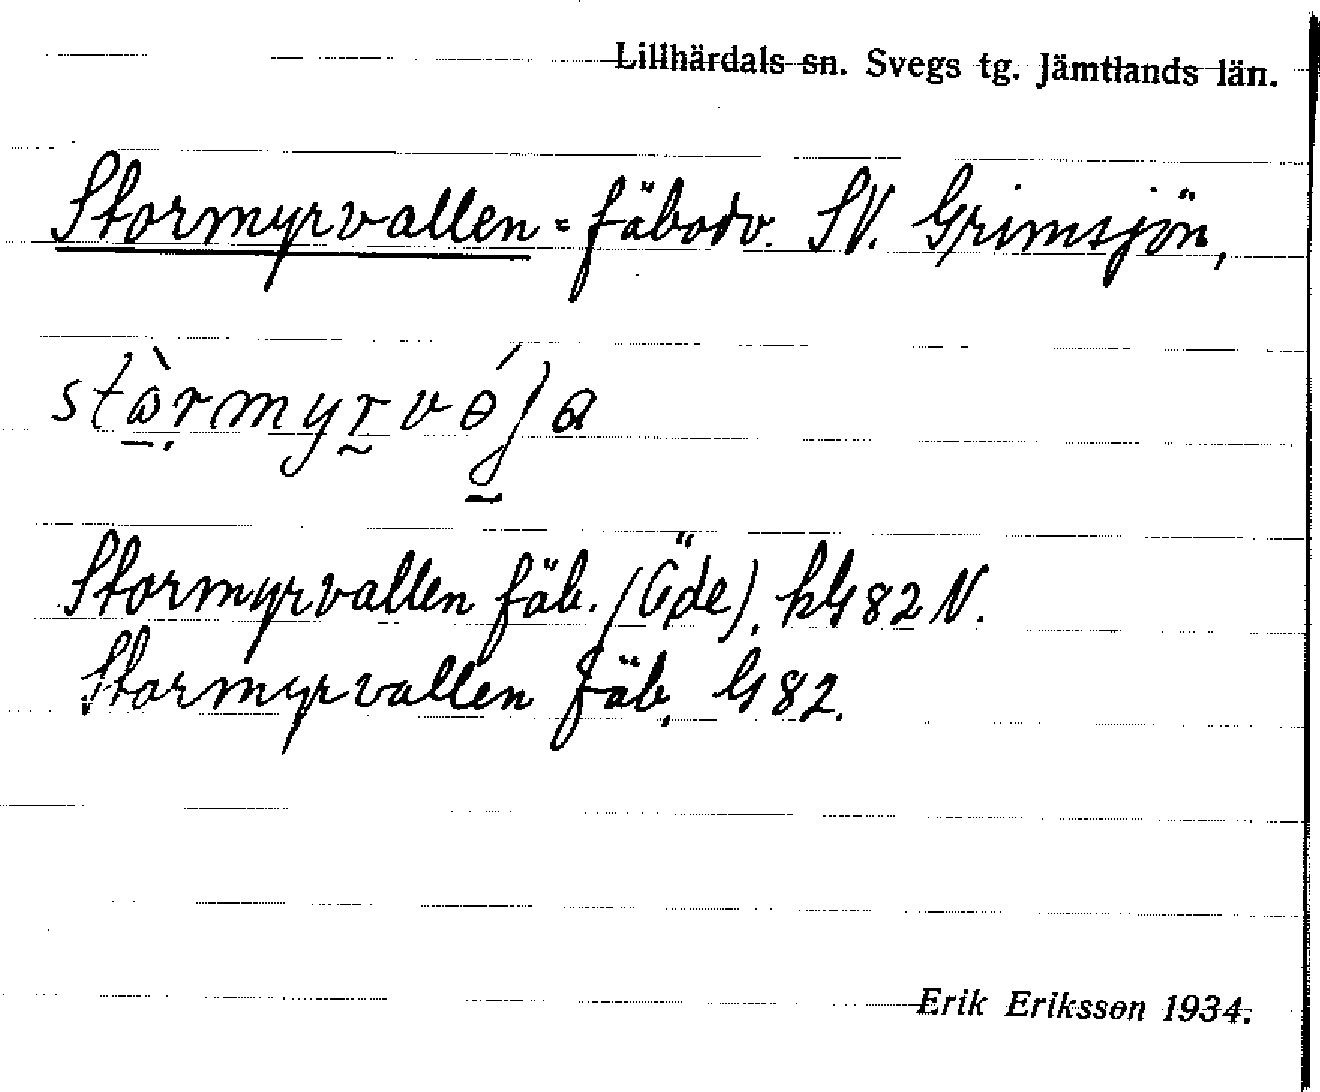 Lillhärdals sn. Svegs tg. Jämtlands län.
Stormyrvallen = fäbodv. SV. Grimsjön,
Stormyrvallen fäb. (Öde), hG 82 N.
Stormyrvallen fäb. G 82.
Erik Eriksson 1934.